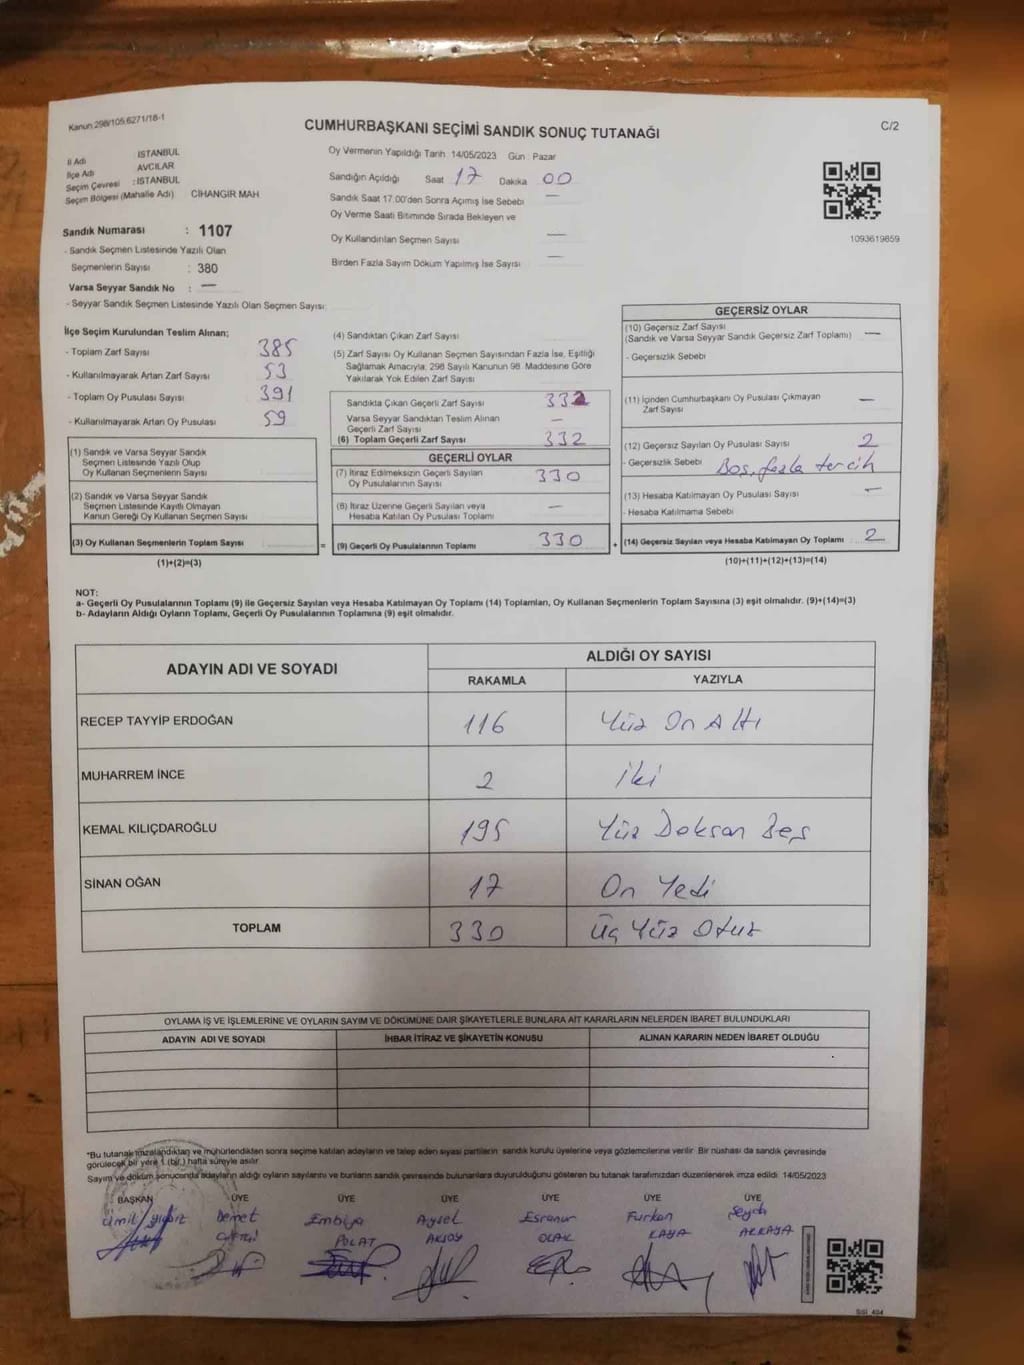 Kanun:298/105,6271/18-1
CUMHURBAŞKANI SEÇİMİ SANDIK SONUÇ TUTANAĞI
C/2
İl Adı : İSTANBUL
İlçe Adı AVCILAR
Seçim Çevresi : İSTANBUL
Seçim Bölgesi (Mahalle Adı) CİHANGİR MAH
Sandık Numarası : 1107
- Sandık Seçmen Listesinde Yazılı Olan
Seçmenlerin Sayısı : 380
Varsa Seyyar Sandık No : —
- Seyyar Sandık Seçmen Listesinde Yazılı Olan Seçmen Sayısı:
Oy Vermenin Yapıldığı Tarih : 14/05/2023 Gün : Pazar
Sandığın Açıldığı Saat 17 Dakika 00
Sandık Saat 17.00'den Sonra Açımış İse Sebebi —
Oy Verme Saati Bitiminde Sırada Bekleyen ve
Oy Kullandırılan Seçmen Sayısı —
Birden Fazla Sayım Döküm Yapılmış İse Sayısı —
1093619859
İlçe Seçim Kurulundan Teslim Alınan;
- Toplam Zarf Sayısı 385
- Kullanılmayarak Artan Zarf Sayısı 53
- Toplam Oy Pusulası Sayısı 391
- Kullanılmayarak Artan Oy Pusulası 59
(1) Sandık ve Varsa Seyyar Sandık
Seçmen Listesinde Yazılı Olup
Oy Kullanan Seçmenlerin Sayısı
(2) Sandık ve Varsa Seyyar Sandık
Seçmen Listesinde Kayıtlı Olmayan
Kanun Gereği Oy Kullanan Seçmen Sayısı
(3) Oy Kullanan Seçmenlerin Toplam Sayısı
=
(1)+(2)=(3)
(4) Sandıktan Çıkan Zarf Sayısı
(5) Zarf Sayısı Oy Kullanan Seçmen Sayısından Fazla İse, Eşitliği
Sağlamak Amacıyla, 298 Sayılı Kanunun 98. Maddesine Göre
Yakılarak Yok Edilen Zarf Sayısı
Sandıkta Çıkan Geçerli Zarf Sayısı 332
Varsa Seyyar Sandıktan Teslim Alınan
Geçerli Zarf Sayısı —
(6) Toplam Geçerli Zarf Sayısı 332
GEÇERLİ OYLAR
(7) İtiraz Edilmeksizin Geçerli Sayılan
Oy Pusulalarının Sayısı 330
(8) İtiraz Üzerine Geçerli Sayılan veya
Hesaba Katılan Oy Pusulası Toplamı —
(9) Geçerli Oy Pusulalarının Toplamı 330
+
GEÇERSİZ OYLAR
(10) Geçersiz Zarf Sayısı
(Sandık ve Varsa Seyyar Sandık Geçersiz Zarf Toplamı) —
- Geçersizlik Sebebi
(11) İçinden Cumhurbaşkanı Oy Pusulası Çıkmayan
Zarf Sayısı —
(12) Geçersiz Sayılan Oy Pusulası Sayısı 2
- Geçersizlik Sebebi Boş, fazla tercih
(13) Hesaba Katılmayan Oy Pusulası Sayısı —
- Hesaba Katılmama Sebebi
(14) Geçersiz Sayılan veya Hesaba Katılmayan Oy Toplamı 2
(10)+(11)+(12)+(13)=(14)
NOT:
a- Geçerli Oy Pusulalarının Toplamı (9) ile Geçersiz Sayılan veya Hesaba Katılmayan Oy Toplamı (14) Toplamları, Oy Kullanan Seçmenlerin Toplam Sayısına (3) eşit olmalıdır. (9)+(14)=(3)
b- Adayların Aldığı Oyların Toplamı, Geçerli Oy Pusulalarının Toplamına (9) eşit olmalıdır.
ADAYIN ADI VE SOYADI
ALDIĞI OY SAYISI
RAKAMLA YAZIYLA
RECEP TAYYİP ERDOĞAN 116 Yüz On Altı
MUHARREM İNCE 2 iki
KEMAL KILIÇDAROĞLU 195 Yüz Doksan Beş
SİNAN OĞAN 17 On Yedi
TOPLAM 330 Üç Yüz Otuz
OYLAMA İŞ VE İŞLEMLERİNE VE OYLARIN SAYIM VE DÖKÜMÜNE DAİR ŞİKAYETLERLE BUNLARA AİT KARARLARIN NELERDEN İBARET BULUNDUKLARI
ADAYIN ADI VE SOYADI İHBAR İTİRAZ VE ŞİKAYETİN KONUSU ALINAN KARARIN NEDEN İBARET OLDUĞU
*Bu tutanak imzalandıktan ve mühürlendikten sonra seçime katılan adayların ve talep eden siyasi partilerin sandık kurulu üyelerine veya gözlemcilerine verilir. Bir nüshası da sandık çevresinde
görülecek bir yere 1 (bir) hafta süreyle asılır.
Sayım ve döküm sonucunda adayların aldığı oyların sayılarını ve bunların sandık çevresinde bulunanlara duyurulduğunu gösteren bu tutanak tarafımızdan düzenlenerek imza edildi. 14/05/2023
BAŞKAN ÜYE ÜYE ÜYE ÜYE ÜYE ÜYE
Ümit Demet Embiya Aysel Esranur Furkan
POLAT AKSOY OCAK KAYA AKKAYA